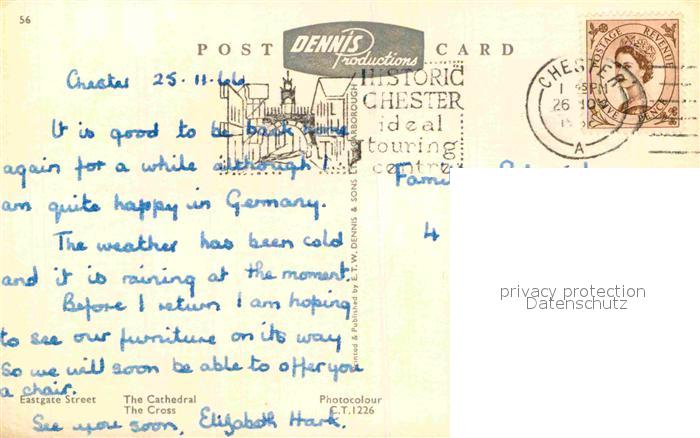 56
POST CARD
DENNIS
Productions
Chester 25.11.66
HISTORIC
CHESTER
ideal
touring
centre
CHESTER
PM
26 NO
A
POSTAGE REVENUE
FIVE PENCE
It is good to be back home
again for a while although I
am quite happy in Germany.
The weather has been cold
and it is raining at the moment.
Before I return I am hoping
to see our furniture on its way
So we will soon be able to offer you
a chair.
See you soon, Elizabeth
4
Printed & Published by E.T.W. DENNIS & SONS SCARBOROUGH
Eastgate Street The Cathedral Photocolour
The Cross C.T.1226
privacy protection
Datenschutz